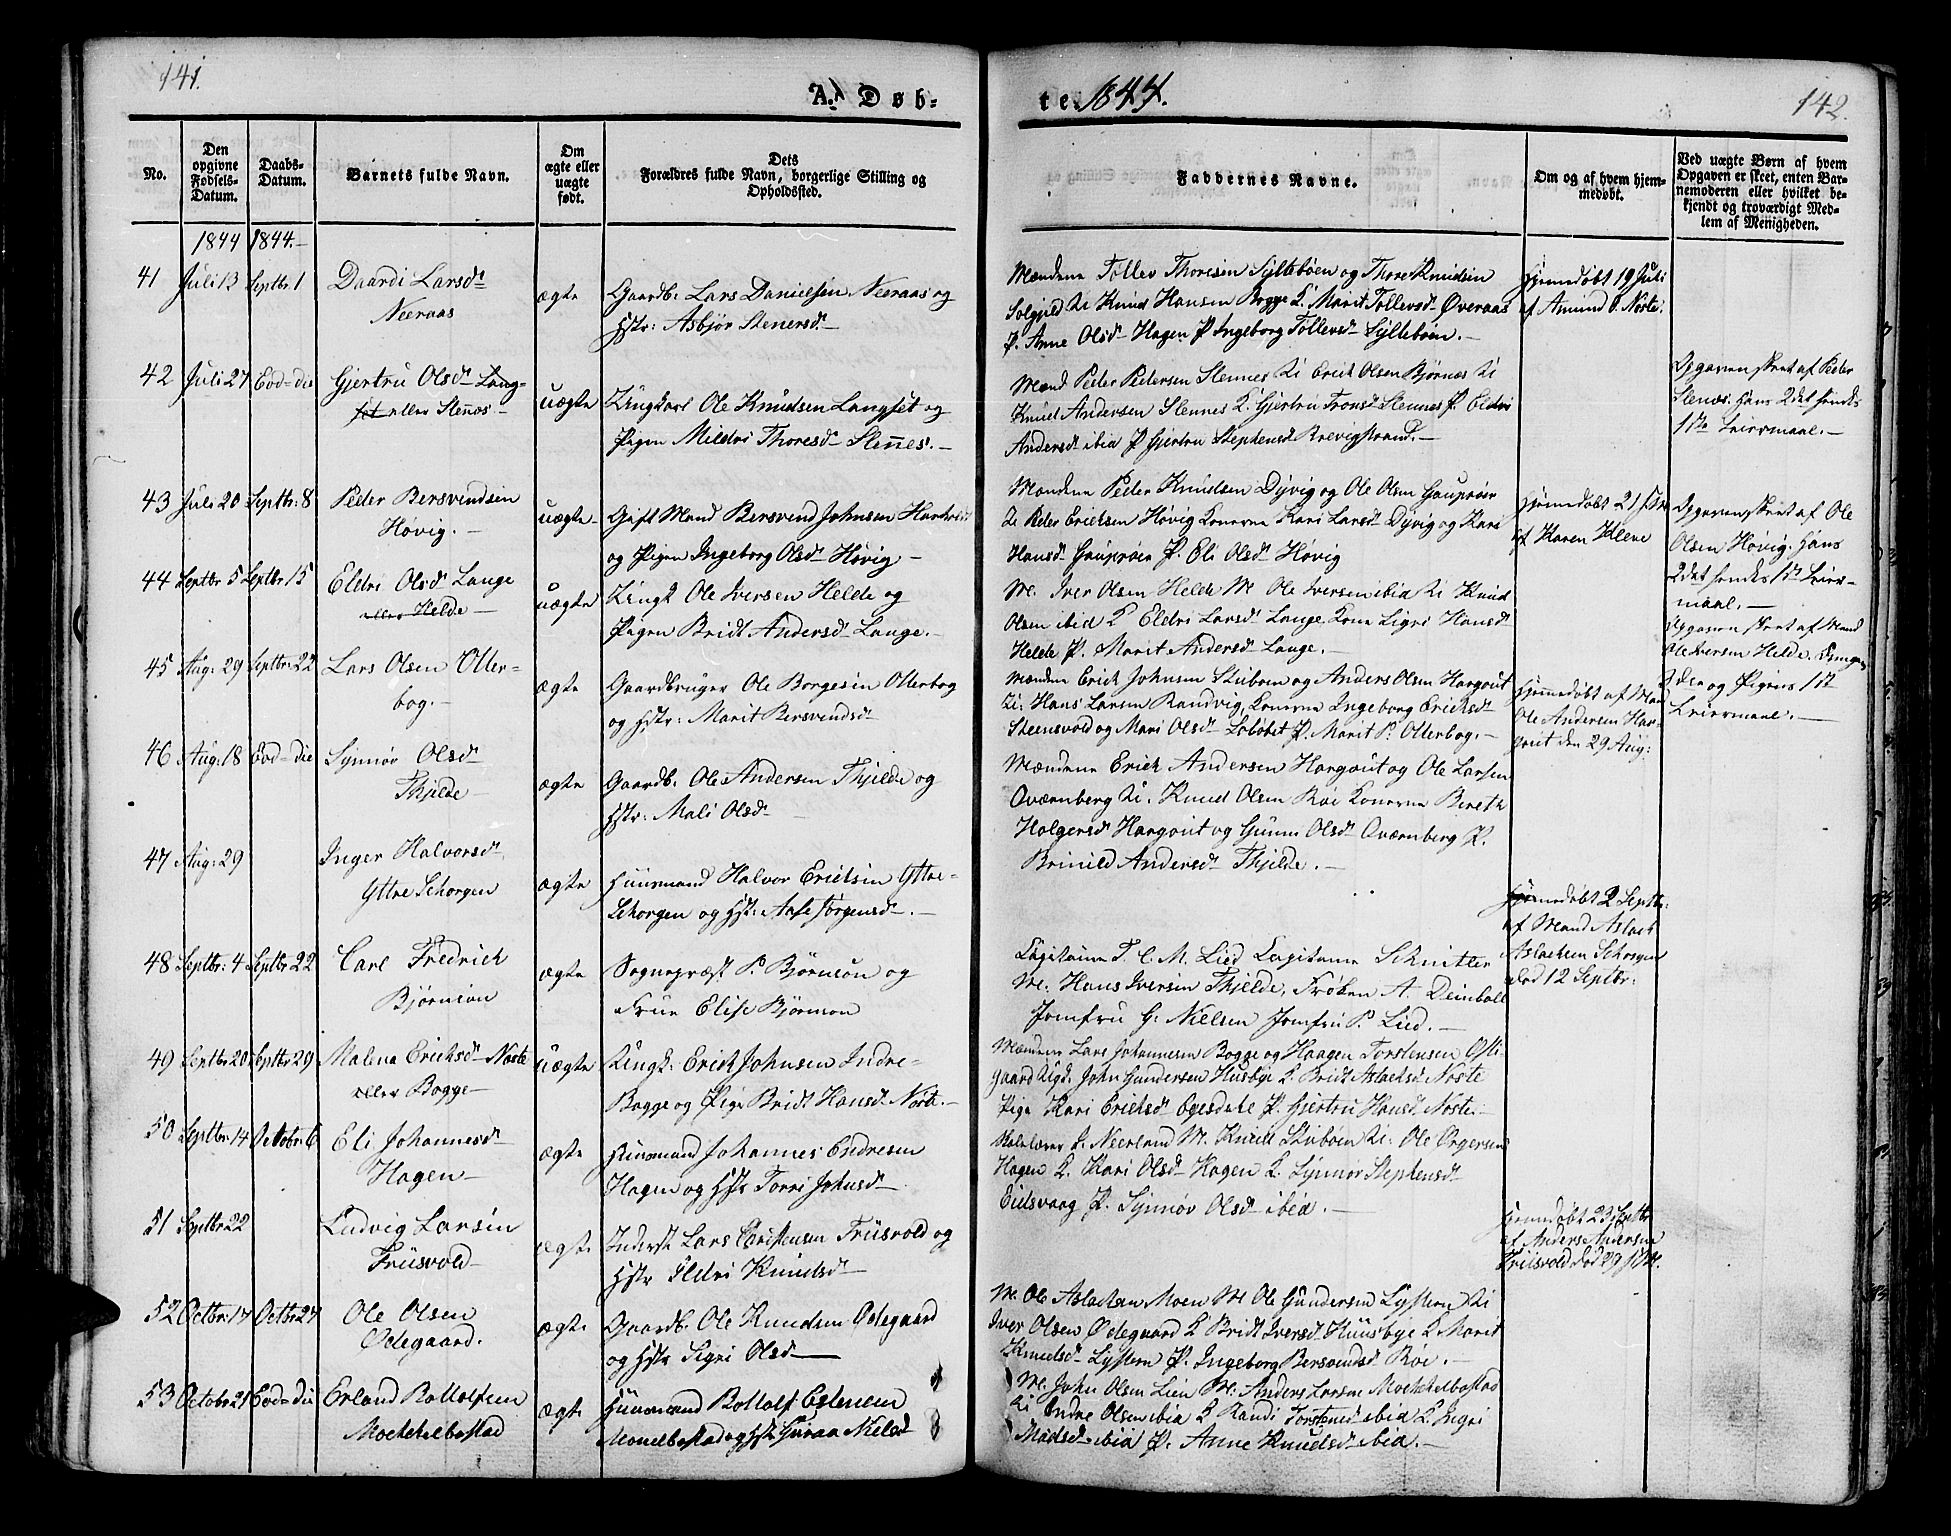 141.
A. Døb-
te. 1844.
142.
No.
Den opgivne Fødsels-Datum.
Daabs-Datum.
Barnets fulde Navn.
Om ægte eller uægte født.
Dets Forældres fulde Navn, borgerlige Stilling og Opholdssted.
Faddernes Navne.
Om og af hvem hjem-medøbt.
Ved uægte Børn af hvem Opgaven er skeet, enten Bar-nemoderen eller hvilket be-kjendt og troværdigt Med-lem af Menigheden.
1844 1844.-
41 Juli 13 Septbr. 1 Daardi Larsd-
Neeraas
ægte
Gaardb. Lars Danielsen Neeraas og
Hstr: Asbjør Stenersd-
Mændene Tollev Thoresen Syltebøen og Thore Knudsen
Solgjeld Ki Knud Hansen Bogge K. Marit Tollevsd- Øveraas
P. Anne Olsd- Hagen P Ingeborg Tollevsd- Syltebøen.-
Hjemmedøbt 19 Juli
af Amund O. Noste.
42 Juli 27 Eod=die Gjertru Olsd- Lang-
set eller Slenes-
uægte
Ungkarl Ole Knudsen Langset og
Pigen Mildri Thoresd- Slennes.-
Mænd Peder Pedersen Slennes Ki Erich Olsen Bjørnes Ki
Knud Andersen Slennes K. Gjertru Tronsd- Slennes P. Eldri
Andersd- ibid P Gjertru Stephensd Brevigstrand.-
Opgaven skeet af Peder
Slenes. Hans 2det hendes
1ste Leiermaal.-
43 Juli 20 Septbr: 8 Peder Bersvendsen
Høvig.-
uægte-
Gift Mand Bersvend Johnsen
og Pigen Ingeborg Olsd- Høvig-
Mændene Peder Knudsen Dyvig og Ole Olsen Gauprøen
Ki Peder Erichsen Høvig Konerne Kari Larsd- Dyvig og Kari
Hansd- Gauprøen P. Eli Olsd- Høvig
Hjemmedøbt 21
af Karen Kleve
Opgaven skeet af Ole
Olsen Høvig. Hans
2det hendes 1ste Leier-
maal.-
44 Septbr 5 Septbr 15 Eldri Olsd Lange
eller Helde-
uægte
Ungk Ole Iversen Helde og
Pigen Bridt Andersd- Lange.-
M. Iver Olsen Helde M Ole Iversen ibid Ki Knud
Olsen ibid K Eldri Larsd- Lange Kone Sigri Hansd
Helde P. Marit Andersd- Lange.-
Opgaven skeet af Mand
Ole Iversen Helde.
og Pigens 1ste
Leiermaal.-
45 Aug: 29 Septbr: 22 Lars Olsen Otter-
bog.-
ægte
Gaardbruger Ole Borgesen Otterbog
og Hstr: Marit Bersvendsd-
Mændene Erich Johnsen Stubøen og Anders Olsen Hargout
Ki. Hans Larsen Randvig, Konerne Ingeborg Erichsd-
Steensvold og Mari Olsd- P. Marit P. Otterbog.-
Hjemmedøbt af Man
Ole Andersen Har-
gout den 29 Aug:
46 Aug: 18 Eod=die Synnør Olsd-
Thjelde-
ægte
Gaardb. Ole Andersen Thjelde og
Hstr: Mali Olsd-
Mændene Erich Andersen Hargout og Ole Larsen
Qværnberg Ki. Knud Olsen Røe Konerne Bereth
Holgersd Hargout og Gunnu Olsd- Qværnberg P.
Brinild Andersd- Thjelde.-
47 Aug: 29 Inger Halvorsd-
Yttre Schorgen
ægte
Huusmand Halvor Erichsen Yttre-
Schorgen og Hst: Aase Jørgensd-.-
Hjemmedøbt 2 Septbr:
af Mand Aslack
Aslacksen Schorgen
død 12 Septbr:
48 Septbr: 4 Septbr 22 Carl Fredrich
Bjørnson
ægte
Sognepræst P. Bjørnson og
Frue Elise Bjørnson
Capitaine T. C. M. Lied Capitaine Schnitler
M. Hans Iversen Thjelde, Frøken A. Deinboll
Jomfru G. Nielsen Jomfru P. Lied.-
49 Septbr 20 Septbr 29 Malena Erichsd- Noste
eller Bogge-
uægte
Ungk: Erich Johnsen Indre-
Bogge og Pige Bridt Hansd- Noste.-
Mændene Lars Johannesen Bogge og Haagen Torstensen
gaard Ugk. John Gundersen Husbye K. Bridt Aslachsd- Noste
Pige Kari Erichsd- P. Gjertru Hansd- Noste.-
50 Septbr 14 Octobr 6 Eli Johannesd-
Hagen-
ægte
Huusmand Johannes Endresen
Hagen og Hstr Torri Johnsd-.
Skolelærer J. Neerland M. Knud Stubøen Ki. Ole
Hagen K. Kari Olsd- Hagen K. Synnør Stephensd-
Eidsvaag P. Synnøv Olsd- ibid.-
51 Septbr 22 Ludvig Larsen
Friisvold-
ægte
Inderst Lars Christensen Friisvold og
Hstr Eldri Knudsd-
Hjemmedøbt 23 Septbr
af Anders Andersen
Friisvold død 29
52 Octbr: 17 Octbr 27 Ole Olsen
Ødegaard.
ægte
Gaardb. Ole Knudsen Ødegaard
og Hstr Sigri Olsd-
M. Ole Aslachsen Moen M Ole Gundersen Lystern Ki
Iver Olsen Ødegaard K Bridt Iversd- Huusbye K Marit
Knudsd- Lystern P. Ingeborg Bersvendsd- Røe.-
53 Octobr 21 Eod=die Erland Bottolfsen
Mochhelbostad
ægte
Huusmand Bottolf Estensen
og Hstr Nielsd
M. John Olsen Lien M. Anders Larsen Mochhelbostad
Ki Endre Olsen ibid K Randi Torstensd- ibid K. Ingri
Madsd- ibid P. Anne Knudsd- ibid.-